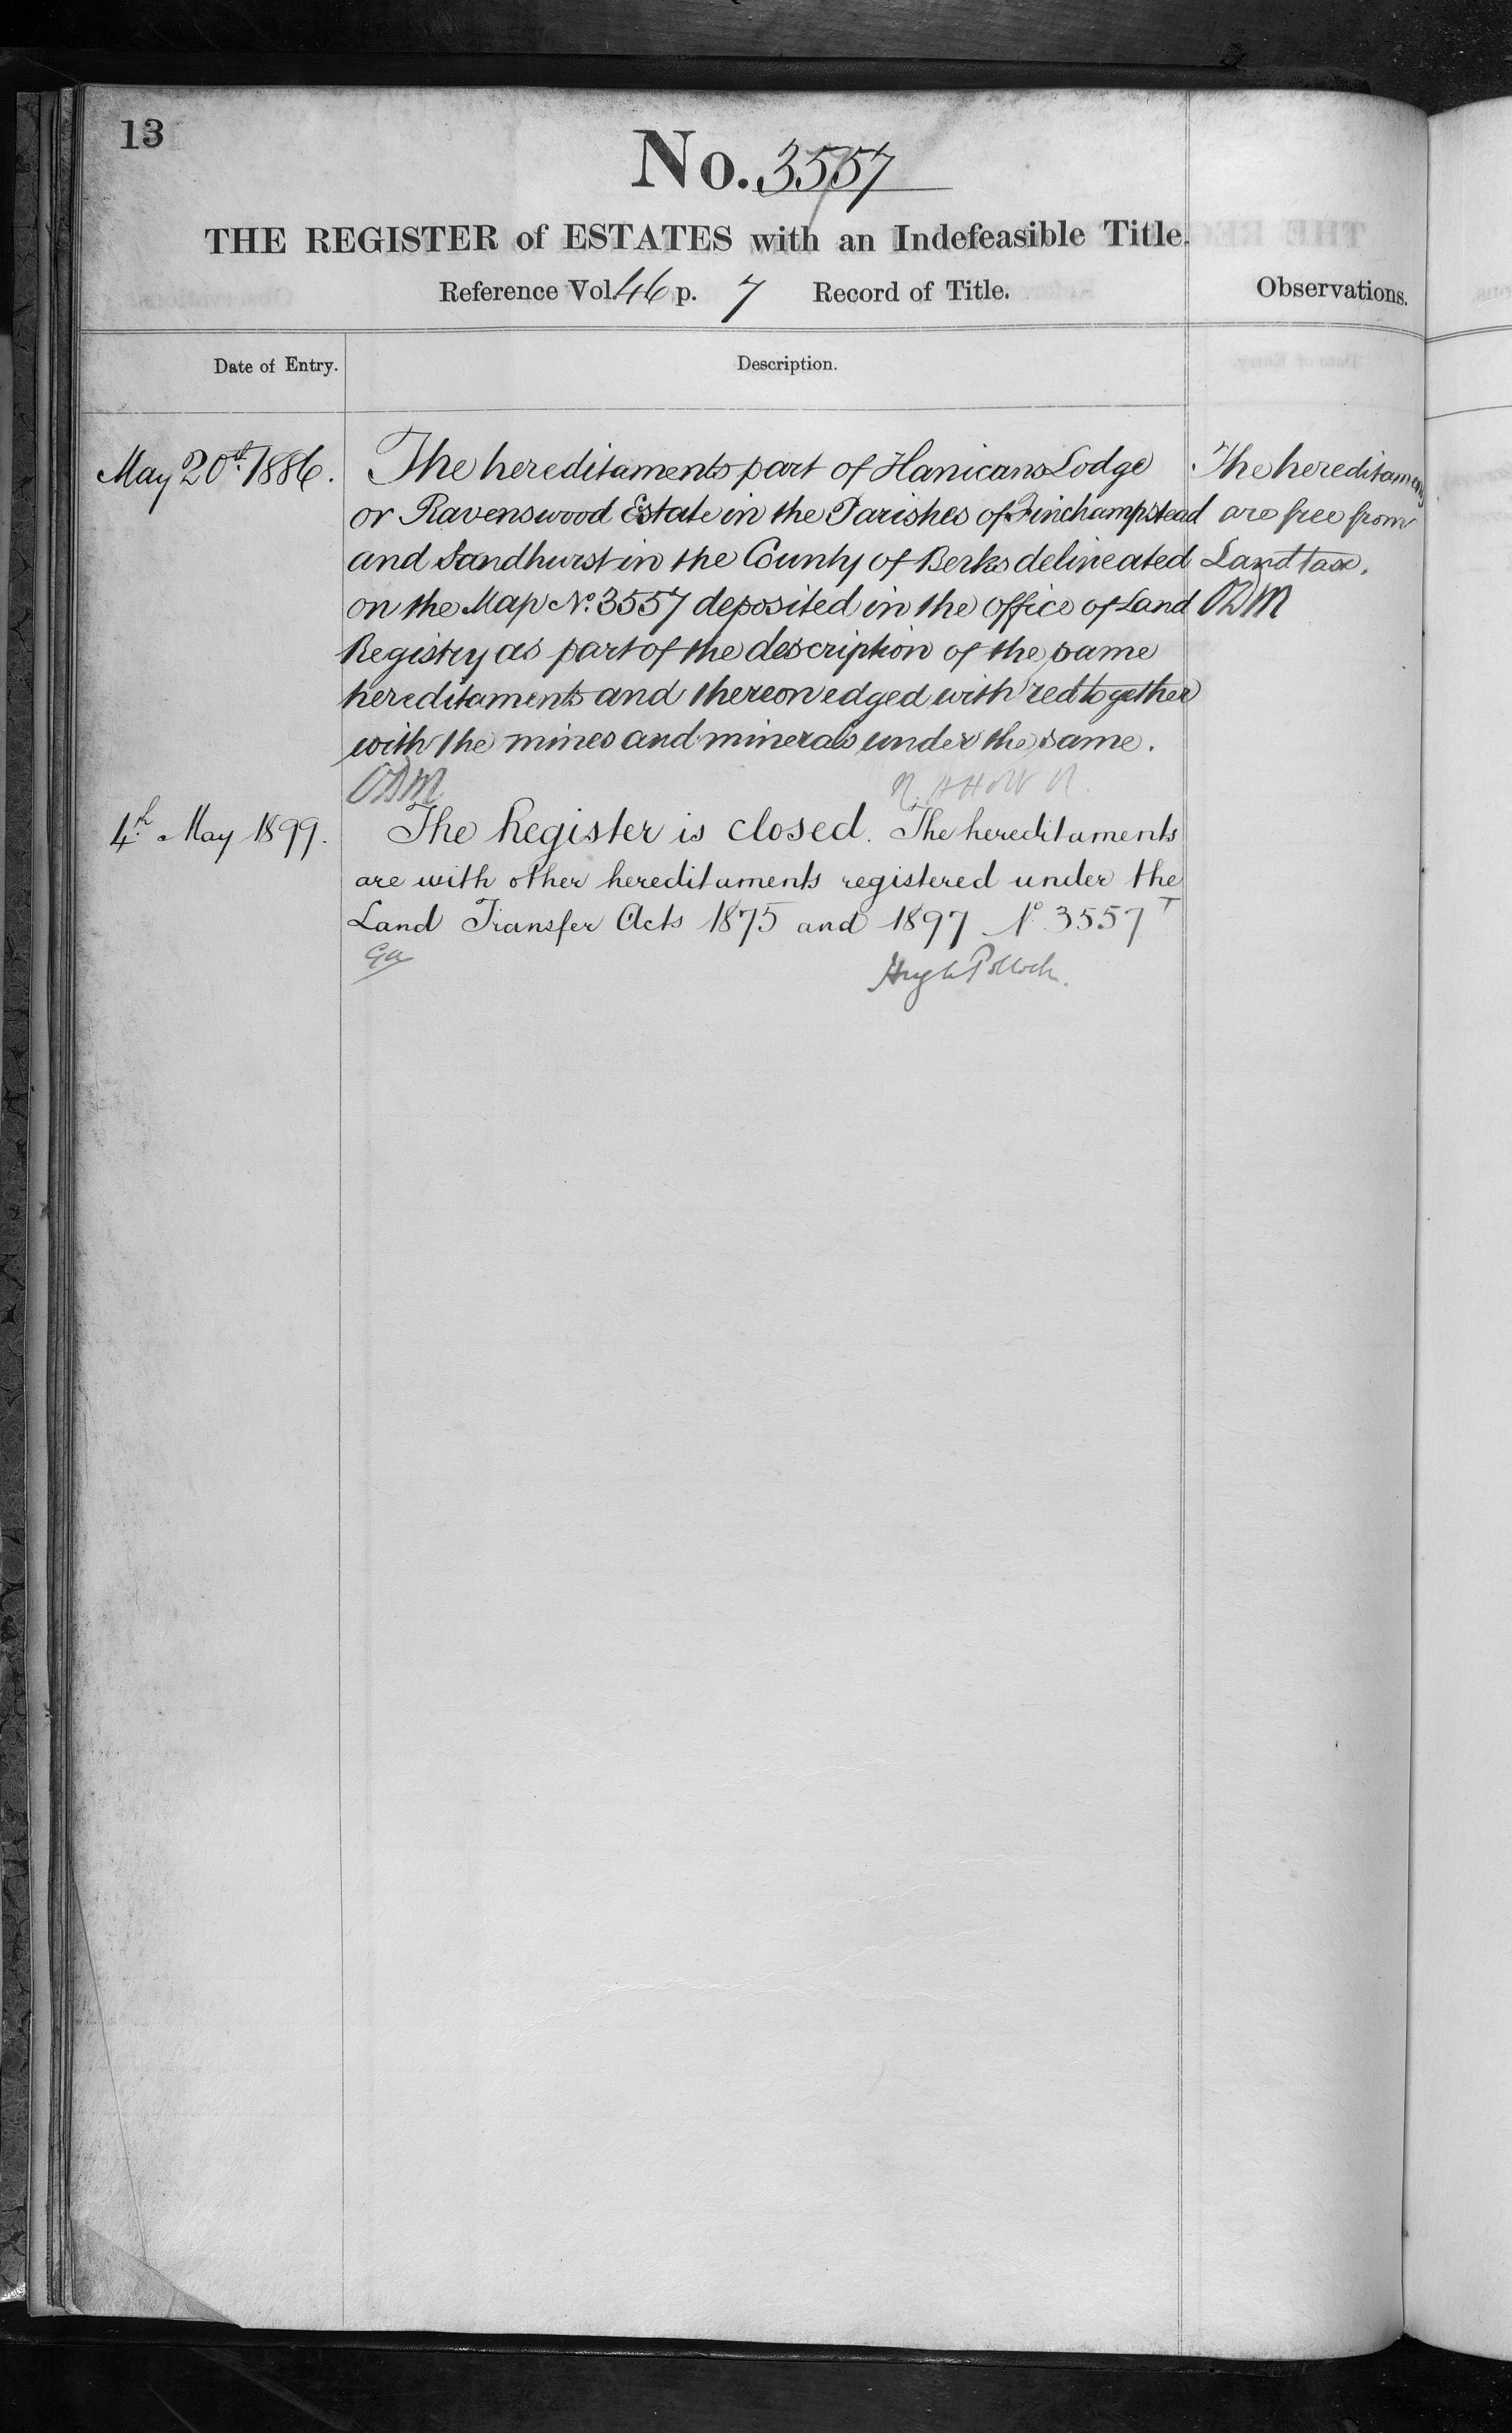 13
No. 3557
THE REGISTER of ESTATES with an Indefeasible Title.
Reference Vol. 46 p. 7 Record of Title.
Observations.
Date of Entry.
Description.
May 20th 1886.
The hereditaments part of Hanicans Lodge
or Ravenswood Estate in the Parishes of Finchampstead
and Sandhurst in the County of Berks delineated
on the Map No. 3557 deposited in the office of Land
Registry as part of the description of the same
hereditaments and thereon edged with red together
with the mines and minerals under the same.
The hereditaments
are free from
Land tax.
4th May 1899.
The Register is closed. The hereditaments
are with other hereditaments registered under the
Land Transfer Acts 1875 and 1897 No 3557 T
Hugh Pollock.